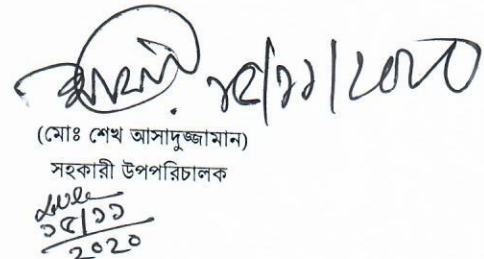 ১৫/১১/২০২০
(মোঃ শেখ আসাদুজ্জামান)
সহকারী উপপরিচালক
১৫/১১
২০২০